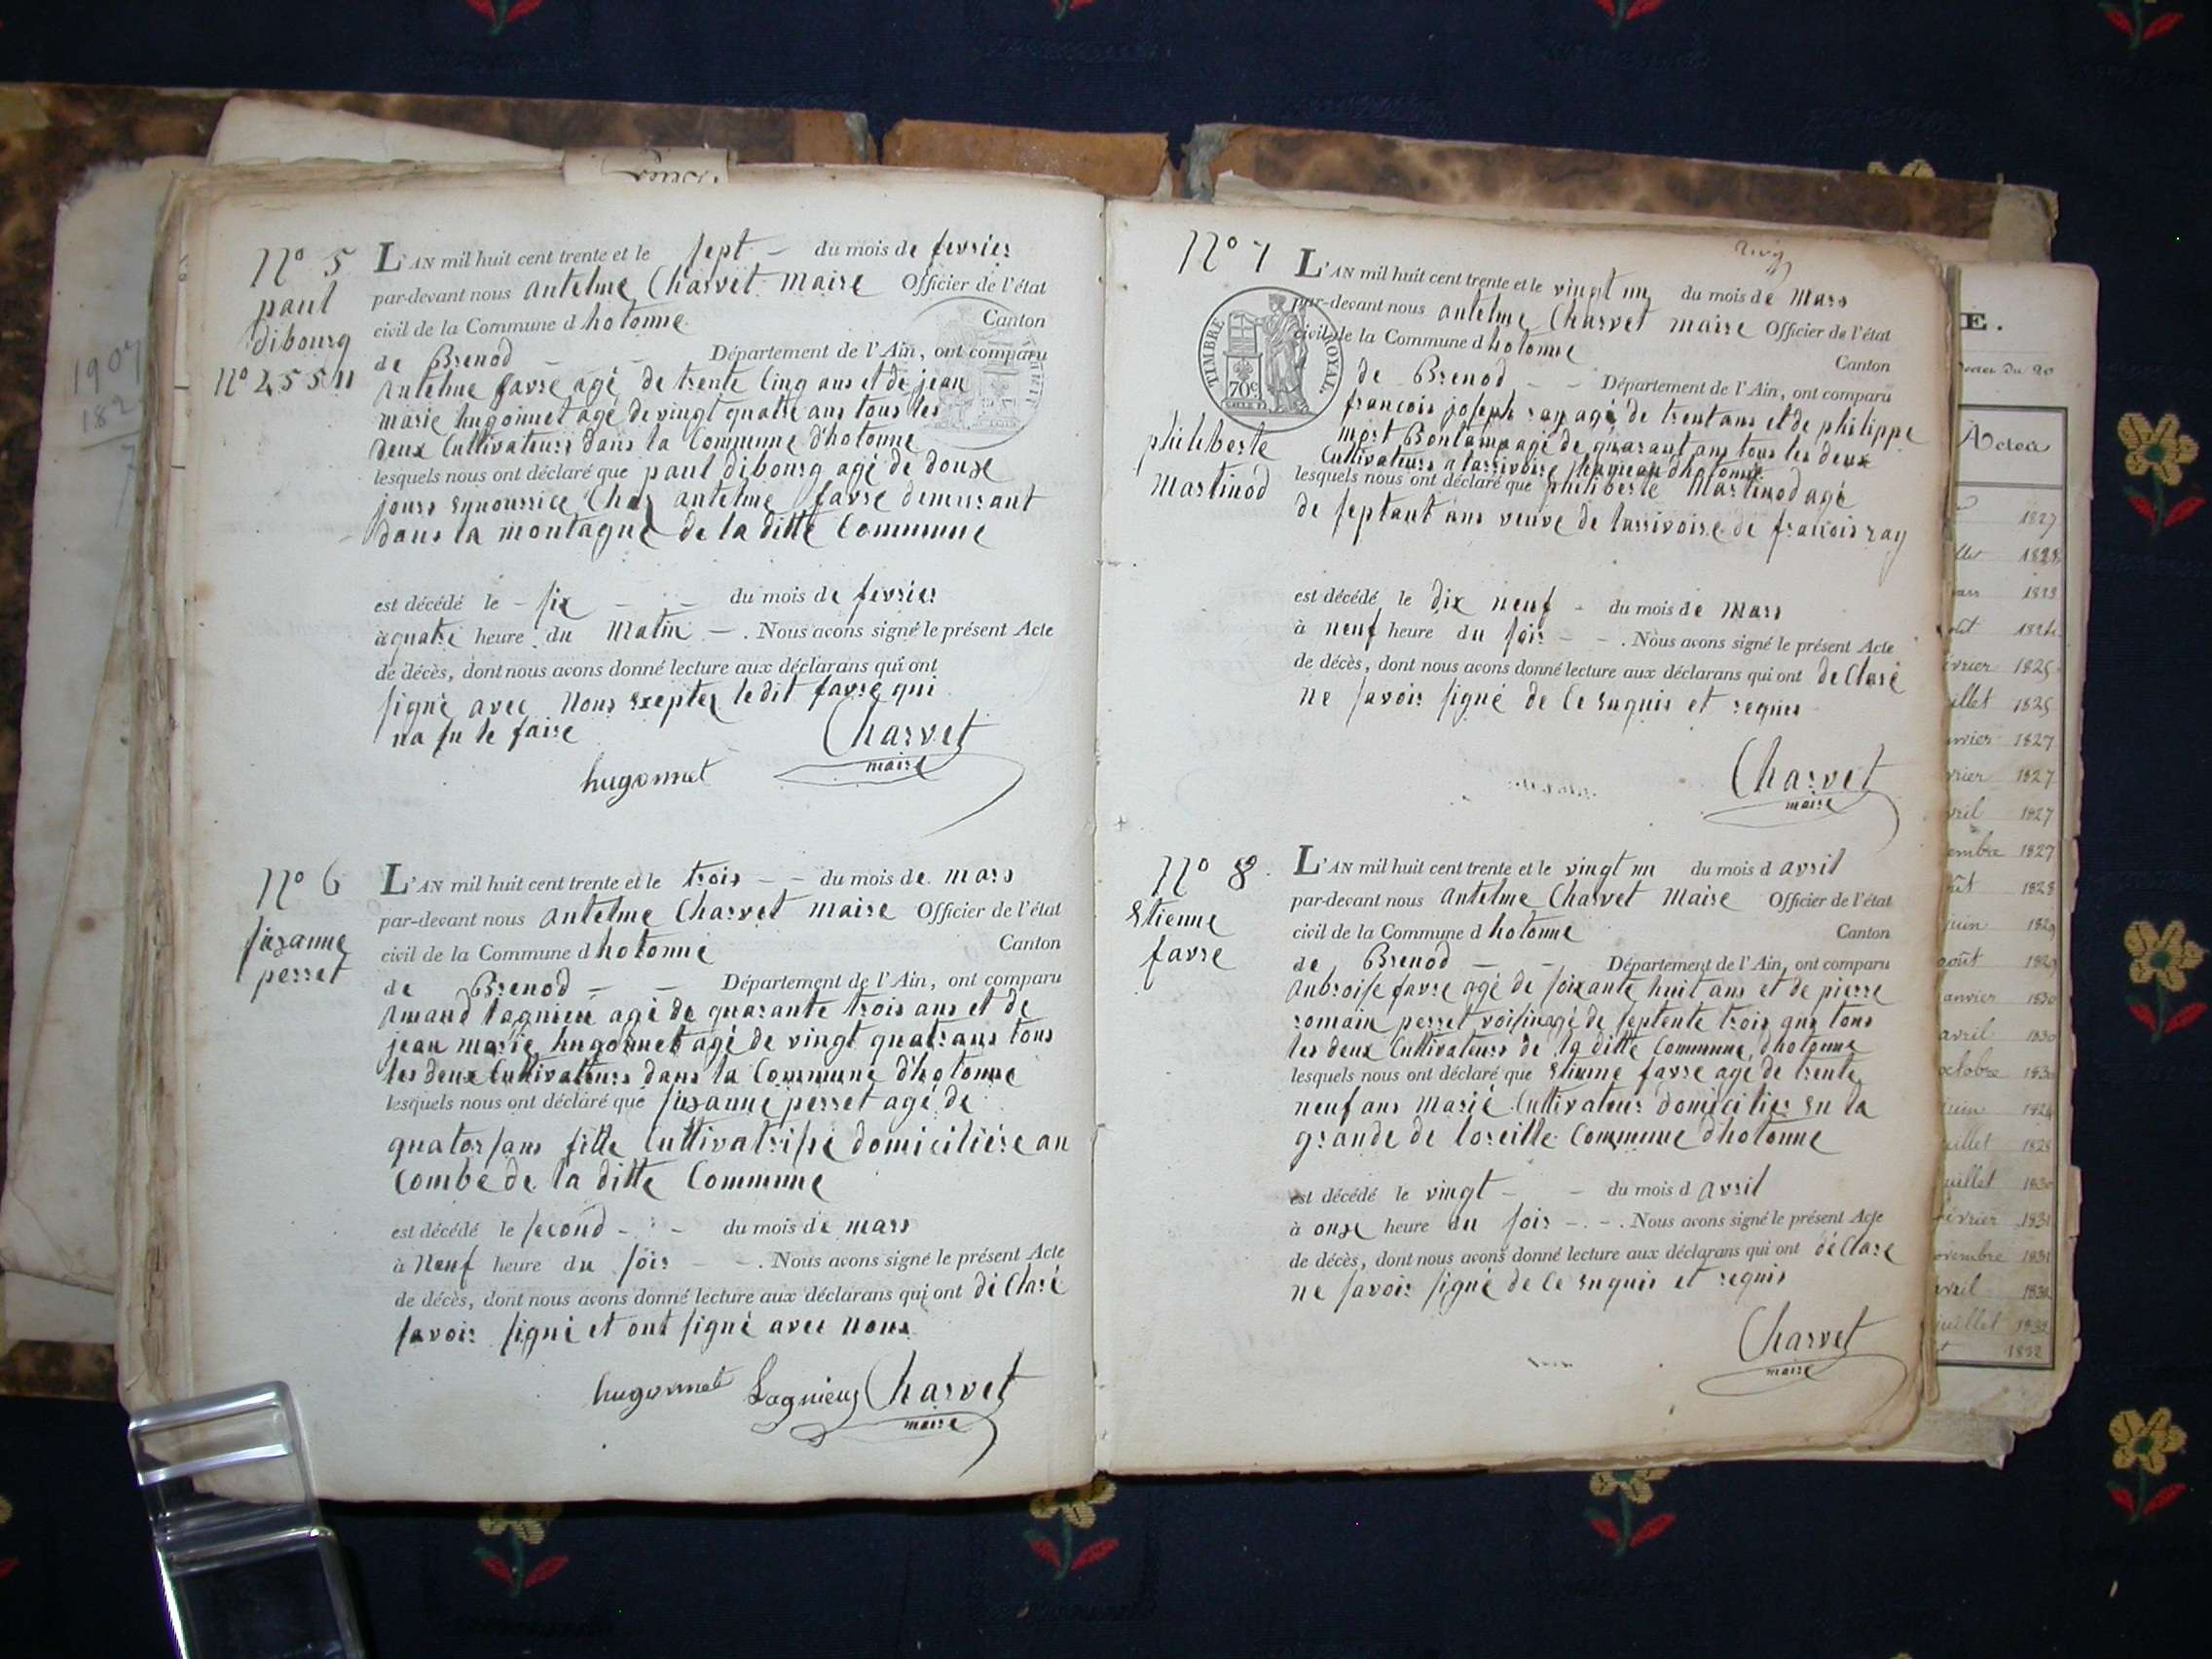 N° 5
paul
dibourg
N° 2,5511
L'AN mil huit cent trente et le sept - du mois de fevrier
par-devant nous antelme Charvet Maire Officier de l'état
civil de la Commune d hotonne Canton
de Brenod - - Département de l'Ain, ont comparu
antelme favre agé de trente Cinq ans et de jean
marie hugonnet agé de vingt quatre ans tous les
deux Cultivateurs dans la Commune d'hotonne
lesquels nous ont déclaré que paul dibourg agé de douse
jours ennourrice Chez antelme favre demeurant
dans la montagne de la ditte Commune
est décédé le - six - - du mois de fevrier
à quatre heure du Matin - . Nous avons signé le présent Acte
de décès, dont nous avons donné lecture aux déclarans qui ont
signé avec Nous exepter le dit favre qui
na su le faire
Charvet
maire
hugonnet
N° 6
susanne
perret
L'AN mil huit cent trente et le trois - - du mois de mars
par-devant nous antelme Charvet Maire Officier de l'état
civil de la Commune d hotonne Canton
de Brenod - - Département de l'Ain, ont comparu
amand lagnieu agé de quarante trois ans et de
jean marie hugonnet agé de vingt quatrans tous
les deux Cultivateurs dans la Commune d'hotonne
lesquels nous ont déclaré que susanne perret agé de
quatorsans fille Cultivatrise domiciliére au
Combe de la ditte Commune
est décédé le second - - du mois de mars
à Neuf heure du soir - - . Nous avons signé le présent Acte
de décès, dont nous avons donné lecture aux déclarans qui ont déClaré
savoir signé et ont signé avec nous
hugonnet Lagnieu Charvet
maire
N° 7
philiberte
Martinod
TIMBRE ROYAL
70c
L'AN mil huit cent trente et le vingt un du mois de Mars
par-devant nous antelme Charvet maire Officier de l'état
civil de la Commune d hotonne Canton
de Brenod - - Département de l'Ain, ont comparu
francois joseph ray agé de trent ans et de philippe
mort Bontamp agé de quarant ans tous les deux
Cultivateurs a larrivoire hameau dhotonne
lesquels nous ont déclaré que philiberte Martinod agé
de septant ans veuve de larrivoire de francois ray
est décédé le dix neuf - du mois de Mars
à neuf heure du soir - - . Nous avons signé le présent Acte
de décès, dont nous avons donné lecture aux déclarans qui ont deClaré
ne savoir signé de Ce enquis et requis
Charvet
maire
N° 8
Etienne
favre
L'AN mil huit cent trente et le vingt un du mois d avril
par-devant nous antelme Charvet Maire Officier de l'état
civil de la Commune d hotonne Canton
de Brenod - - Département de l'Ain, ont comparu
anbroise favre agé de soixante huit ans et de pierre
romain perret voisinagé de septente trois ans tous
les deux Cultivateurs de la ditte Commune dhotonne
lesquels nous ont déclaré que Etienne favre agé de trente
neuf ans Marié Cultivateur domicilier en la
grande de loreille Commune d'hotonne
est décédé le vingt - - du mois d avril
à onse heure du soir - . - . Nous avons signé le présent Acte
de décès, dont nous avons donné lecture aux déclarans qui ont déClaré
ne savoir signé de Ce enquis et requis
Charvet
maire
E.
Actes
1827
1828
1823
1824
évrier 1825
uillet 1825
anvier 1827
vrier 1827
vril 1827
embre 1827
oût 1828
juin 1829
août 1829
anvier 1830
avril 1830
octobre 1830
juin 1824
uillet 1828
uillet 1830
février 1831
ovembre 1831
avril 1832
juillet 1832
1832